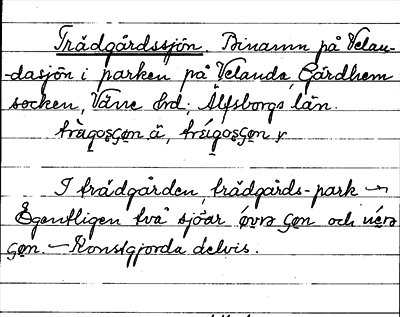 Trädgårdssjön. Binamn på Velan-
-dasjön i parken på Velanda, Gärdhem
socken, Väne hrd; Älfsborgs län.
trägo̥şʃøn ä, trägo̥şʃøn y
I trädgården, trädgårds-park
Egentligen två sjöar övrə ʃøn och
ʃøn. — Konstgjorda delvis.